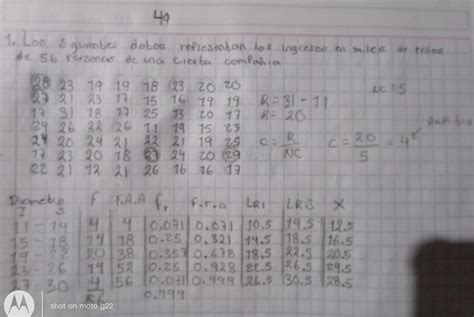 49
1. Los siguientes datos representan los ingresos en miles de pesos
de 56 personas de una cierta compañia
20 23 19 19 18 23 20 20
27 21 23 17 15 16 19 19
17 31 18 17 25 13 20 17
24 26 22 26 11 19 15 23
24 20 24 21 22 21 19 25
17 23 20 18 24 20 29
22 21 12 21 26 16 16 17
NC = 5
R = 31 - 11
R = 20
C = R/NC C = 20/5 = 4
Diametro f F.A.A fr f.r.a LRI LRS X
I S
11 - 14 4 4 0.071 0.071 10.5 14.5 12.5
15 - 18 14 18 0.25 0.321 14.5 18.5 16.5
19 - 22 20 38 0.357 0.678 18.5 22.5 20.5
23 - 26 14 52 0.25 0.928 22.5 26.5 24.5
27 30 4 56 0.071 0.999 26.5 30.5 28.5
0.999
shot on moto g22